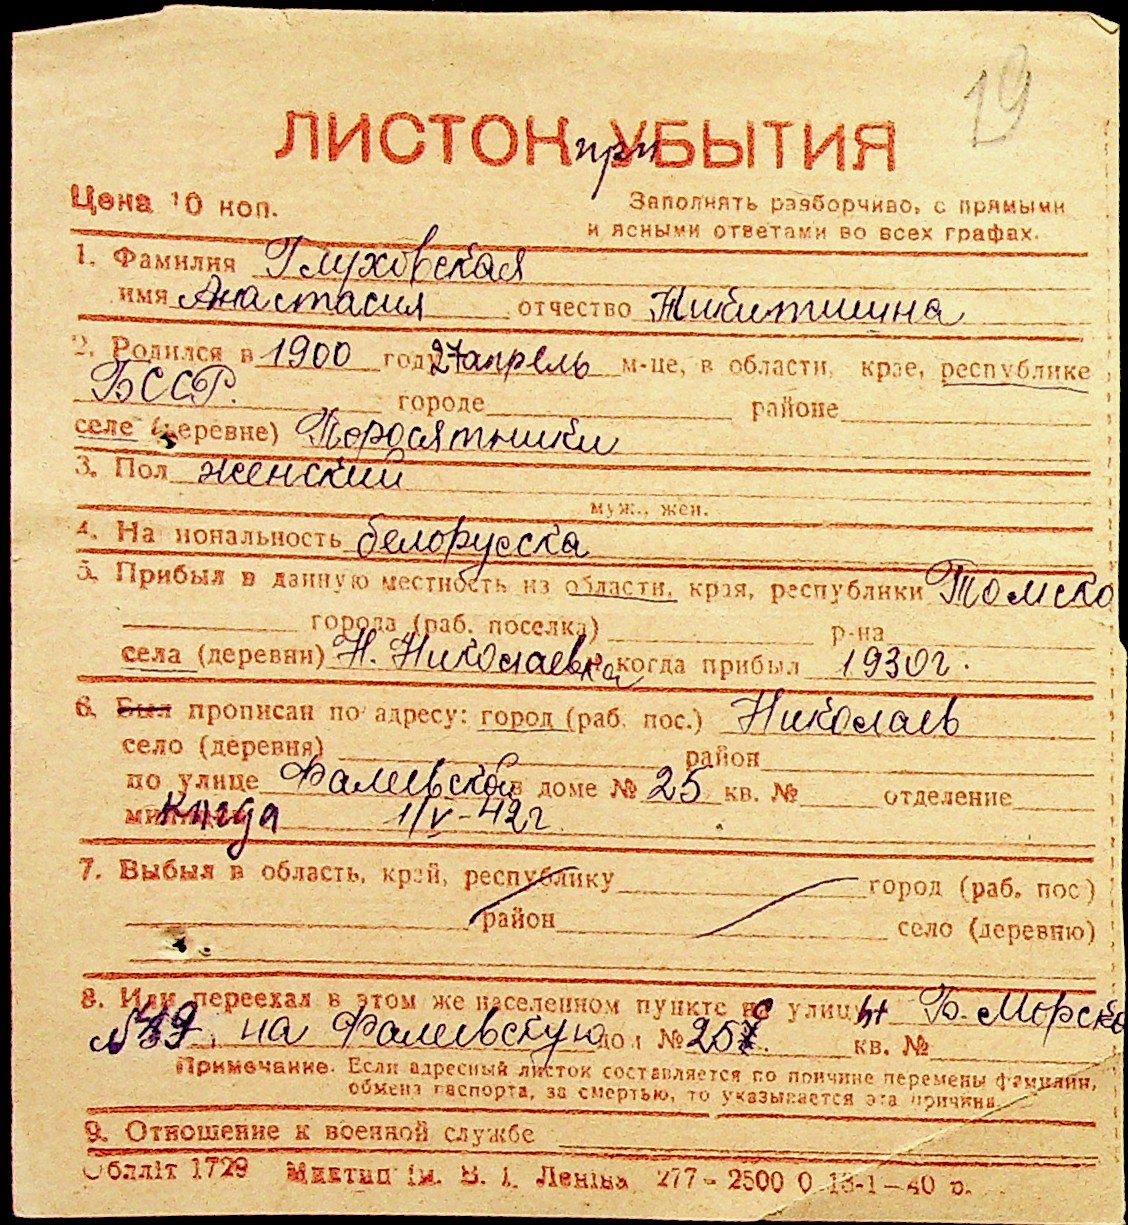 19
ЛИСТОК при УБЫТИЯ
Цена 10 коп.
Заполнять разборчиво, с прямыми
и ясными ответами во всех графах.
1. Фамилия Глуховская
имя Анастасия отчество Никитишна
2. Родился в 1900 году 27 апрель м-це, в области, крае, республике
БССР. городе районе
селе (деревне) Поросятники
3. Пол женский
муж., жен.
4. Национальность белорусска
5. Прибыл в данную местность из области, края, республики Томско
города (раб. поселка) р-на
села (деревни) Н. Николаевка когда прибыл 1930 г.
6. Был прописан по адресу: город (раб. пос.) Николаев
село (деревня) район
по улице Фалеевской в доме № 25 кв. № отделение
когда 1/V-42 г.
7. Выбыл в область, край, республику город (раб. пос)
район село (деревню)
8. Или переехал в этом же населенном пункте с улицы Б. Морско
№ 39, на Фалеевскую дом № 25 кв. №
Примечание. Если адресный листок составляется по причине перемены фамилии,
обмена паспорта, за смертью, то указывается эта причина.
9. Отношение к военной службе
Облліт 1729 Миктип ім. В. І. Леніна 277-2500 0 13-1-40 р.